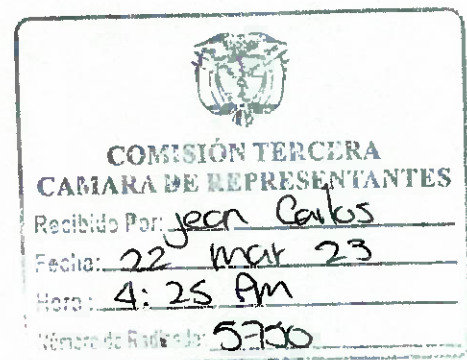 COMISIÓN TERCERA
CAMARA DE REPRESENTANTES
Recibido Por: Jean Carlos
Fecha: 22 mar 23
Hora: 4:25 Pm
Número de Radicado: 5750